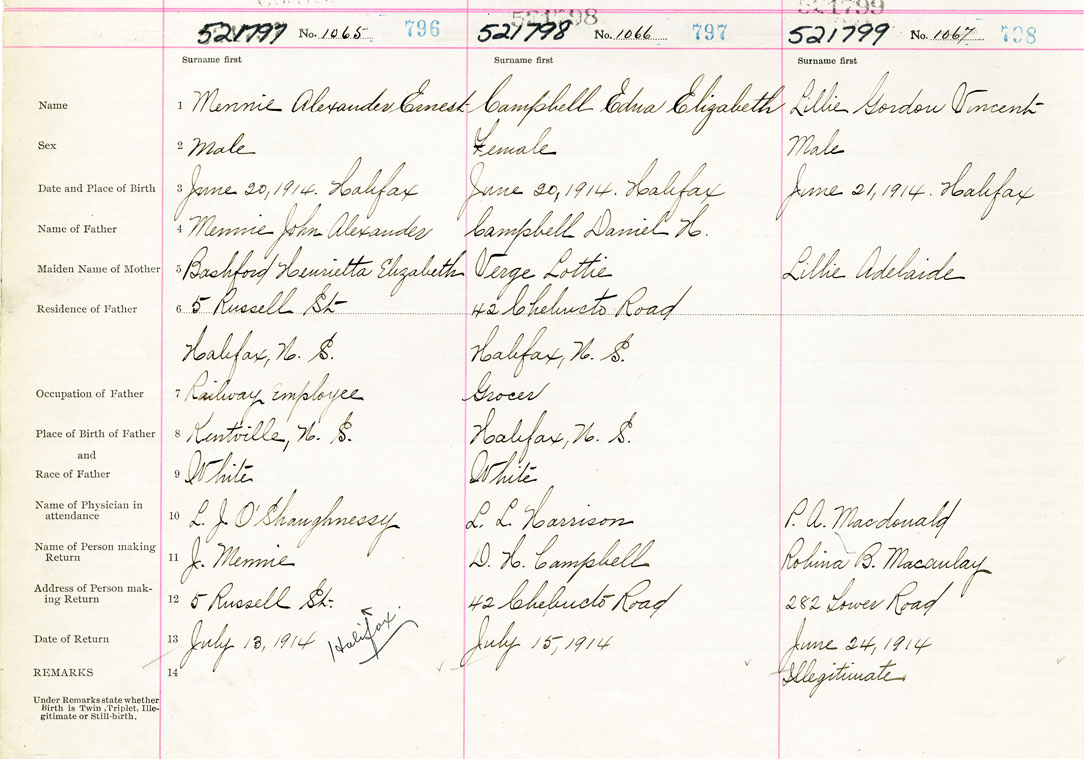 521798
521799
521797 No. 1065 796 521798 No. 1066 797 521799 No. 1067 798
Surname first Surname first Surname first
Name 1 Mennie Alexander Ernest Campbell Edna Elizabeth Lillie Gordon Vincent
Sex 2 Male Female Male
Date and Place of Birth 3 June 20, 1914. Halifax June 20, 1914. Halifax June 21, 1914. Halifax
Name of Father 4 Mennie John Alexander Campbell Daniel H.
Maiden Name of Mother 5 Bashford Henrietta Elizabeth Verge Lottie Lillie Adelaide
Residence of Father 6 5 Russell St 42 Chebucto Road
Halifax, N. S. Halifax, N. S.
Occupation of Father 7 Railway Employee Grocer
Place of Birth of Father 8 Kentville, N. S. Halifax, N. S.
and
Race of Father 9 White White
Name of Physician in
attendance 10 L. J. O'Shaughnessy L. L. Harrison P. A. Macdonald
Name of Person making
Return 11 J. Mennie D. H. Campbell Robina B. Macaulay
Address of Person mak-
ing Return 12 5 Russell St. 42 Chebucto Road 282 Tower Road
Halifax
Date of Return 13 July 13, 1914 July 15, 1914 June 24, 1914
REMARKS 14 Illegitimate
Under Remarks state whether
Birth is Twin, Triplet, Ille-
gitimate or Still-birth.